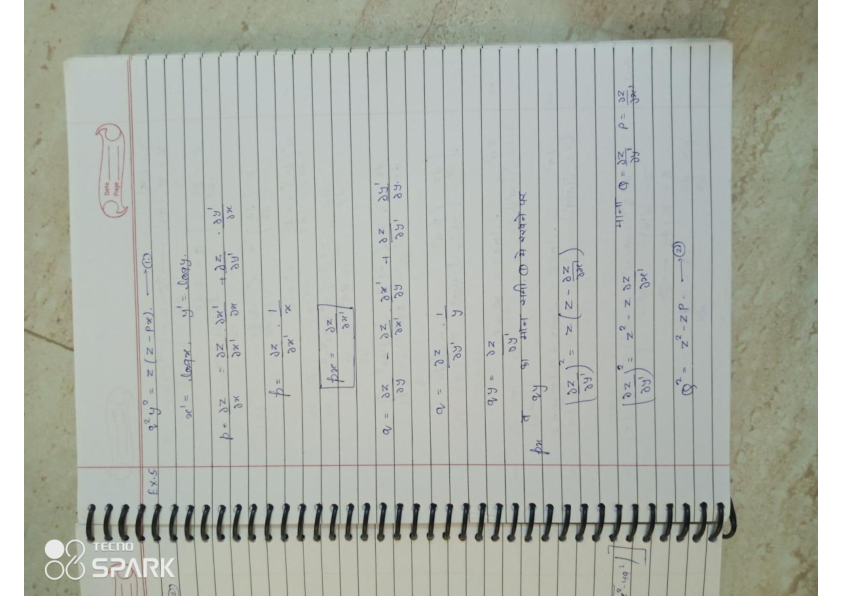 Date
Page
Ex.5 q²y² = z(z - px). → (1)
x' = logx, y' = logy.
p = ∂z/∂x = ∂z/∂x' · ∂x'/∂x + ∂z/∂y' · ∂y'/∂x
p = ∂z/∂x' · 1/x
px = ∂z/∂x'
q = ∂z/∂y - ∂z/∂x' · ∂x'/∂y + ∂z/∂y' ∂y'/∂y.
q = ∂z/∂y' · 1/y
qy = ∂z/∂y'
px व qy का मान समी ① में रखने पर
(∂z/∂y')² = z(z - ∂z/∂x')
(∂z/∂y')² = z² - z ∂z/∂x' माना Q = ∂z/∂y' P = ∂z/∂x'
Q² = z² - zP. → (2)
TECNO
SPARK